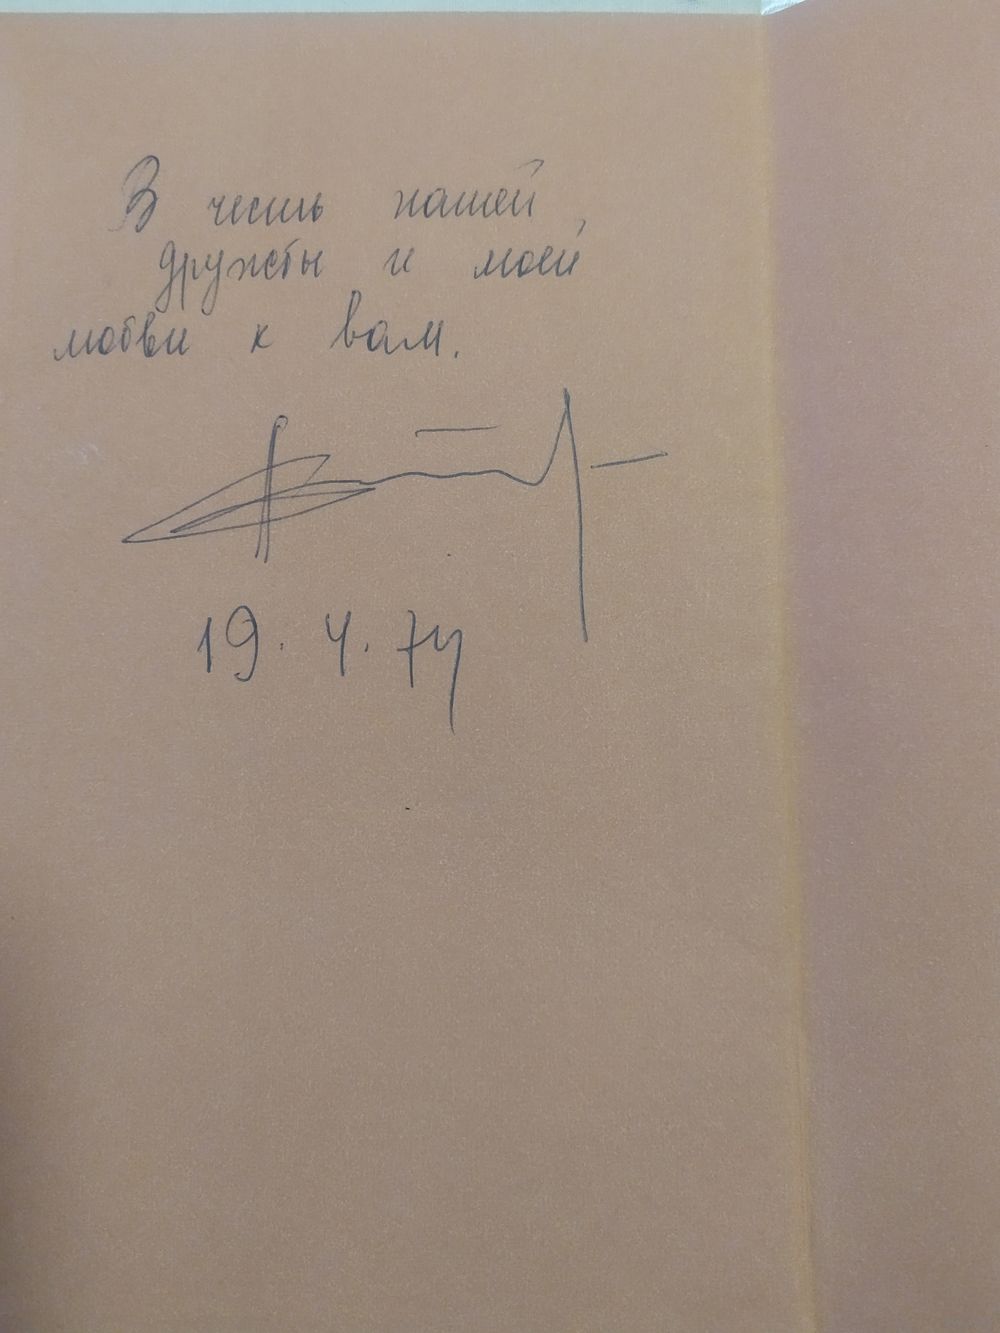 В честь нашей
дружбы и моей
любви к вам.
19.4.74